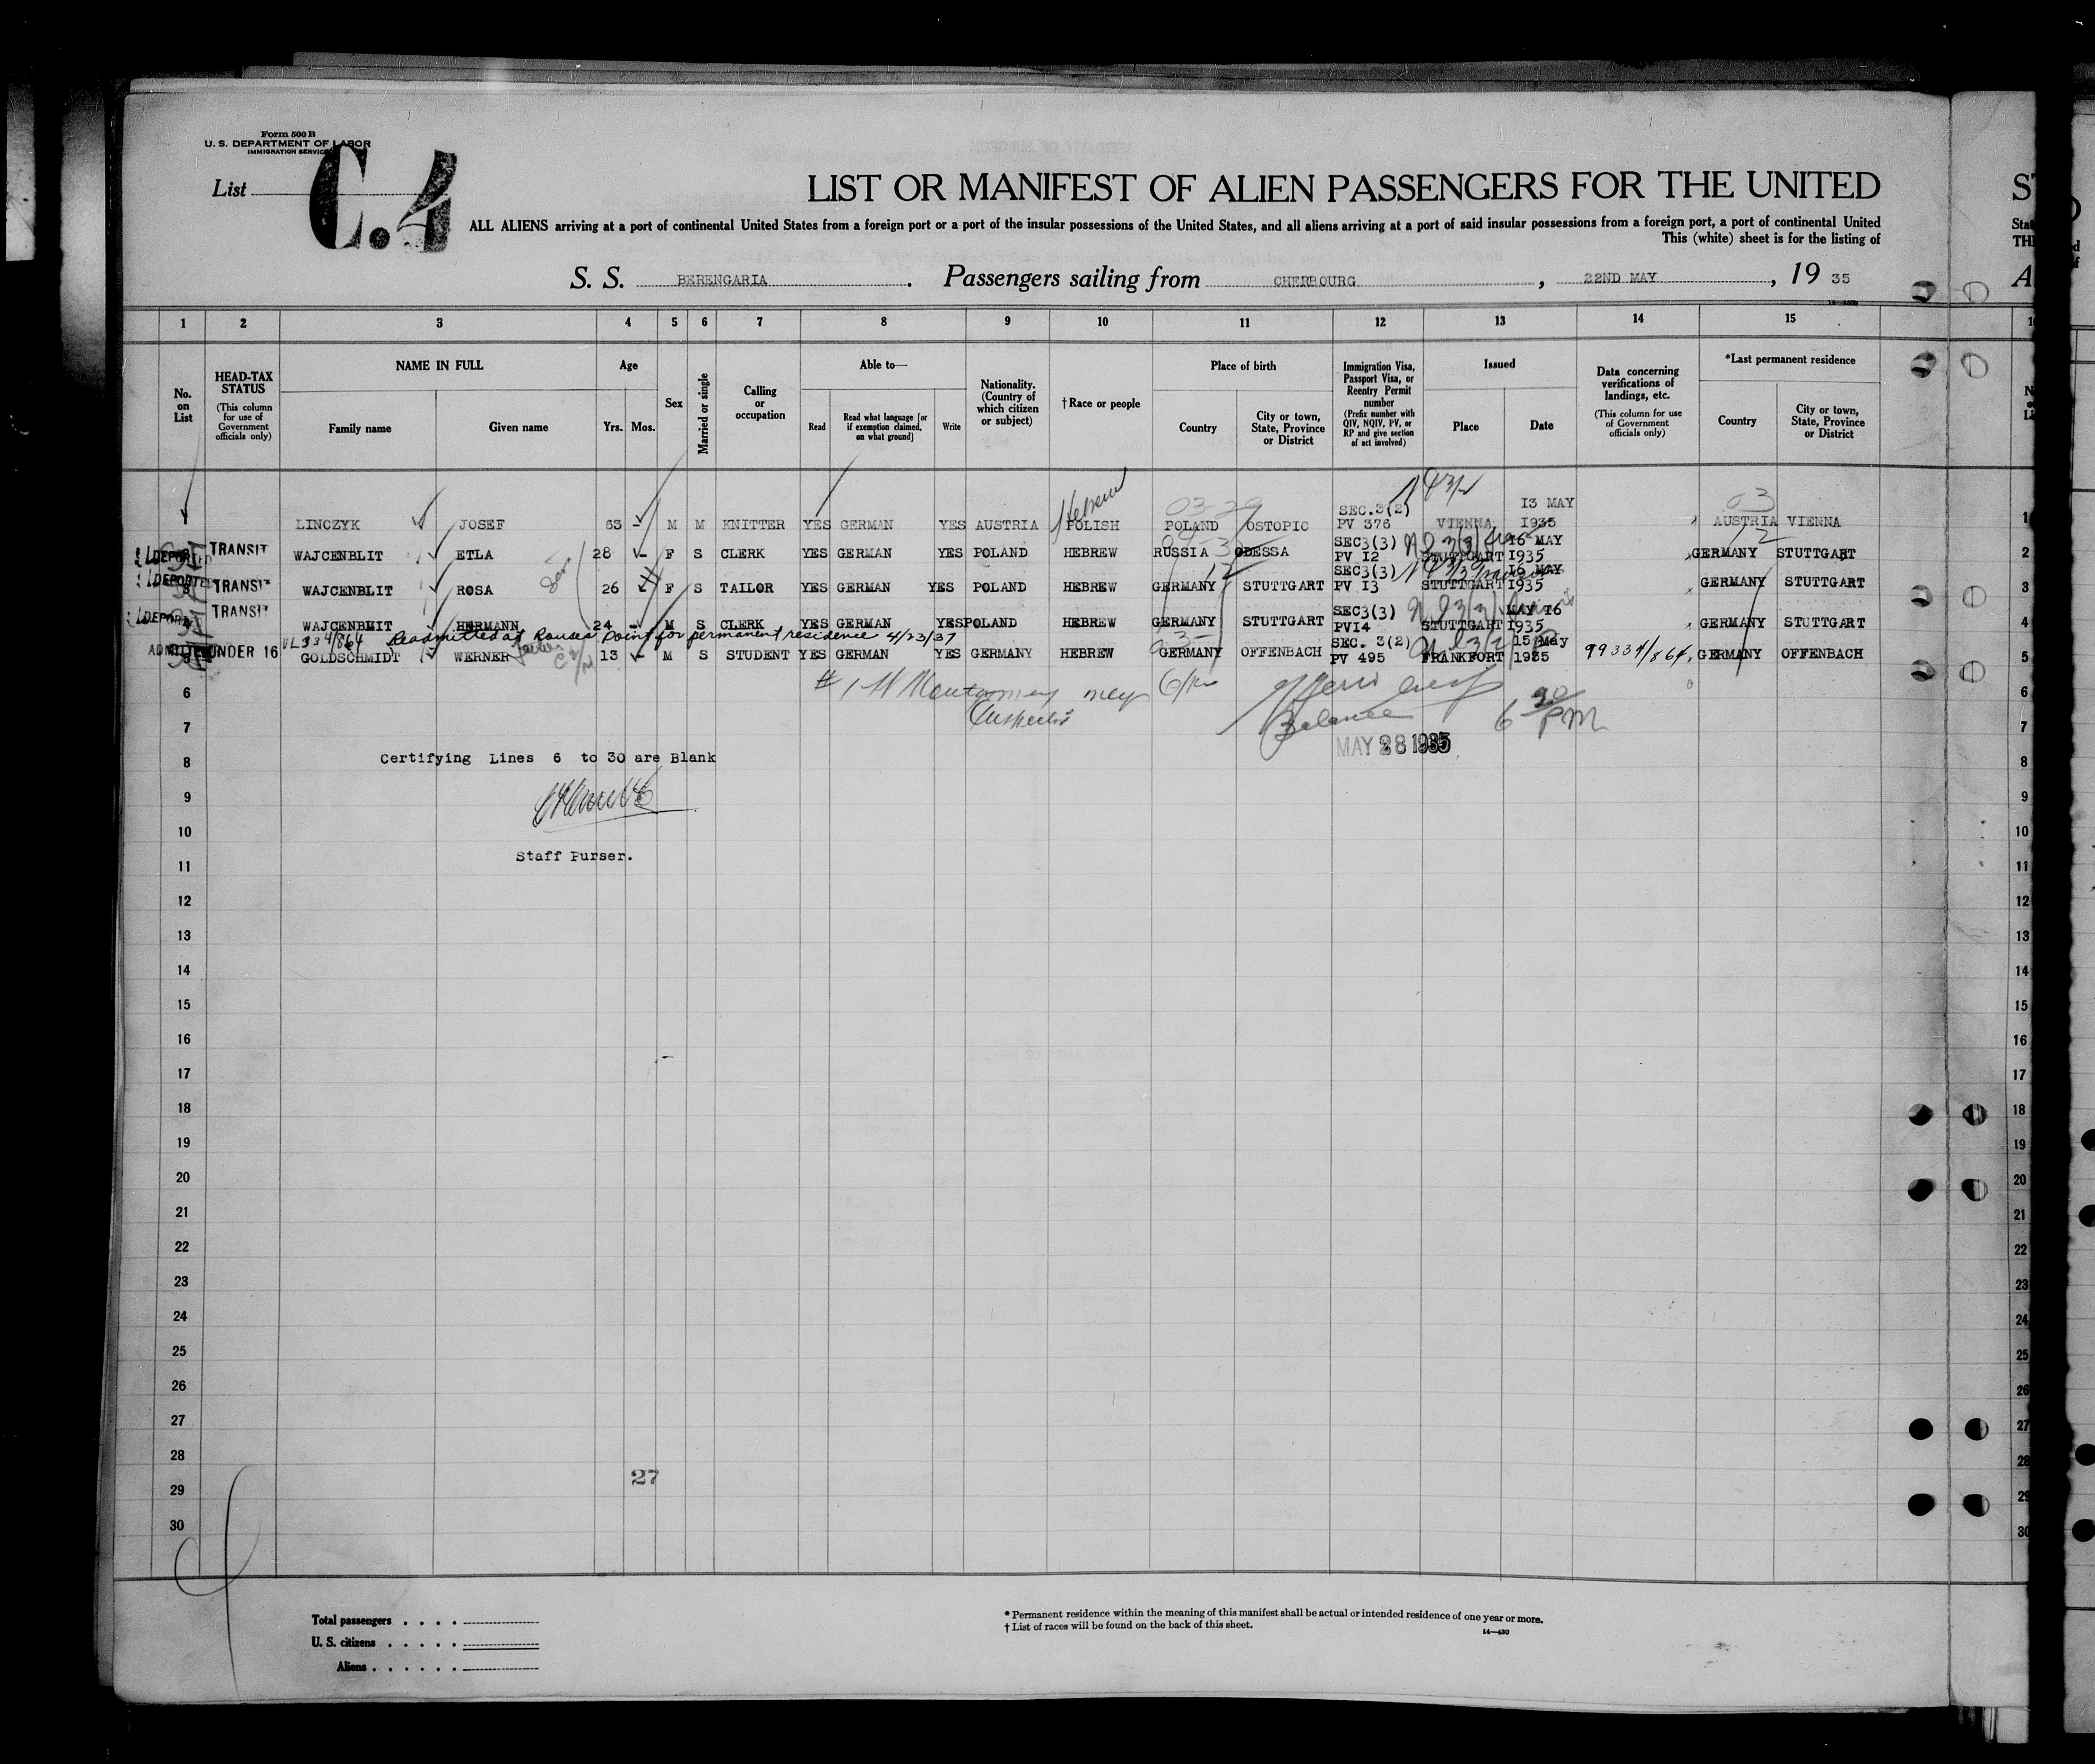 Form 500 B
U. S. DEPARTMENT OF LABOR
IMMIGRATION SERVICE
List C.4
LIST OR MANIFEST OF ALIEN PASSENGERS FOR THE UNITED
ALL ALIENS arriving at a port of continental United States from a foreign port or a port of the insular possessions of the United States, and all aliens arriving at a port of said insular possessions from a foreign port, a port of continental United
This (white) sheet is for the listing of
S. S. BERENGARIA. Passengers sailing from CHERBOURG, 22ND MAY, 19 35
1 2 3 4 5 6 7 8 9 10 11 12 13 14 15
No. on List
HEAD-TAX STATUS (This column for use of Government officials only)
NAME IN FULL
Family name Given name
Age
Yrs. Mos.
Sex
Married or single
Calling or occupation
Able to—
Read Read what language [or if exemption claimed, on what ground] Write
Nationality. (Country of which citizen or subject)
† Race or people
Place of birth
Country City or town, State, Province or District
Immigration Visa, Passport Visa, or Reentry Permit number (Prefix number with QIV, NQIV, PV, or RP and give section of act involved)
Issued
Place Date
Data concerning verifications of landings, etc. (This column for use of Government officials only)
*Last permanent residence
Country City or town, State, Province or District
Hebrew
LINCZYK JOSEF 63 - M M KNITTER YES GERMAN YES AUSTRIA POLISH POLAND OSTOPIC SEC.3(2) PV 376 VIENNA 13 MAY 1935 AUSTRIA VIENNA 1
DEPORTED TRANSIT WAJCENBLIT ETLA 28 - F S CLERK YES GERMAN YES POLAND HEBREW RUSSIA ODESSA SEC3(3) PV I2 STUTTGART 16 MAY 1935 GERMANY STUTTGART 2
DEPORTED TRANSIT WAJCENBLIT ROSA 26 F S TAILOR YES GERMAN YES POLAND HEBREW GERMANY STUTTGART SEC3(3) PV I3 STUTTGART 16 MAY 1935 GERMANY STUTTGART 3
DEPORTED TRANSIT WAJCENBLIT HERMANN 24 - M S CLERK YES GERMAN YES POLAND HEBREW GERMANY STUTTGART SEC3(3) PVI4 STUTTGART MAY 16 1935 GERMANY STUTTGART 4
VL 334/864 Readmitted at Rouses Point for permanent residence 4/23/37
ADMITTED UNDER 16 GOLDSCHMIDT WERNER 13 - M S STUDENT YES GERMAN YES GERMANY HEBREW GERMANY OFFENBACH SEC. 3(2) PV 495 FRANKFORT 15 May 1935 99334/864 GERMANY OFFENBACH 5
6 6
7 7
MAY 28 1935
8 Certifying Lines 6 to 30 are Blank 8
9 9
10 10
11 Staff Purser. 11
12 12
13 13
14 14
15 15
16 16
17 17
18 18
19 19
20 20
21 21
22 22
23 23
24 24
25 25
26 26
27 27
28 28
27
29 29
30 30
Total passengers
U. S. citizens
Aliens
* Permanent residence within the meaning of this manifest shall be actual or intended residence of one year or more.
† List of races will be found on the back of this sheet.
14—430